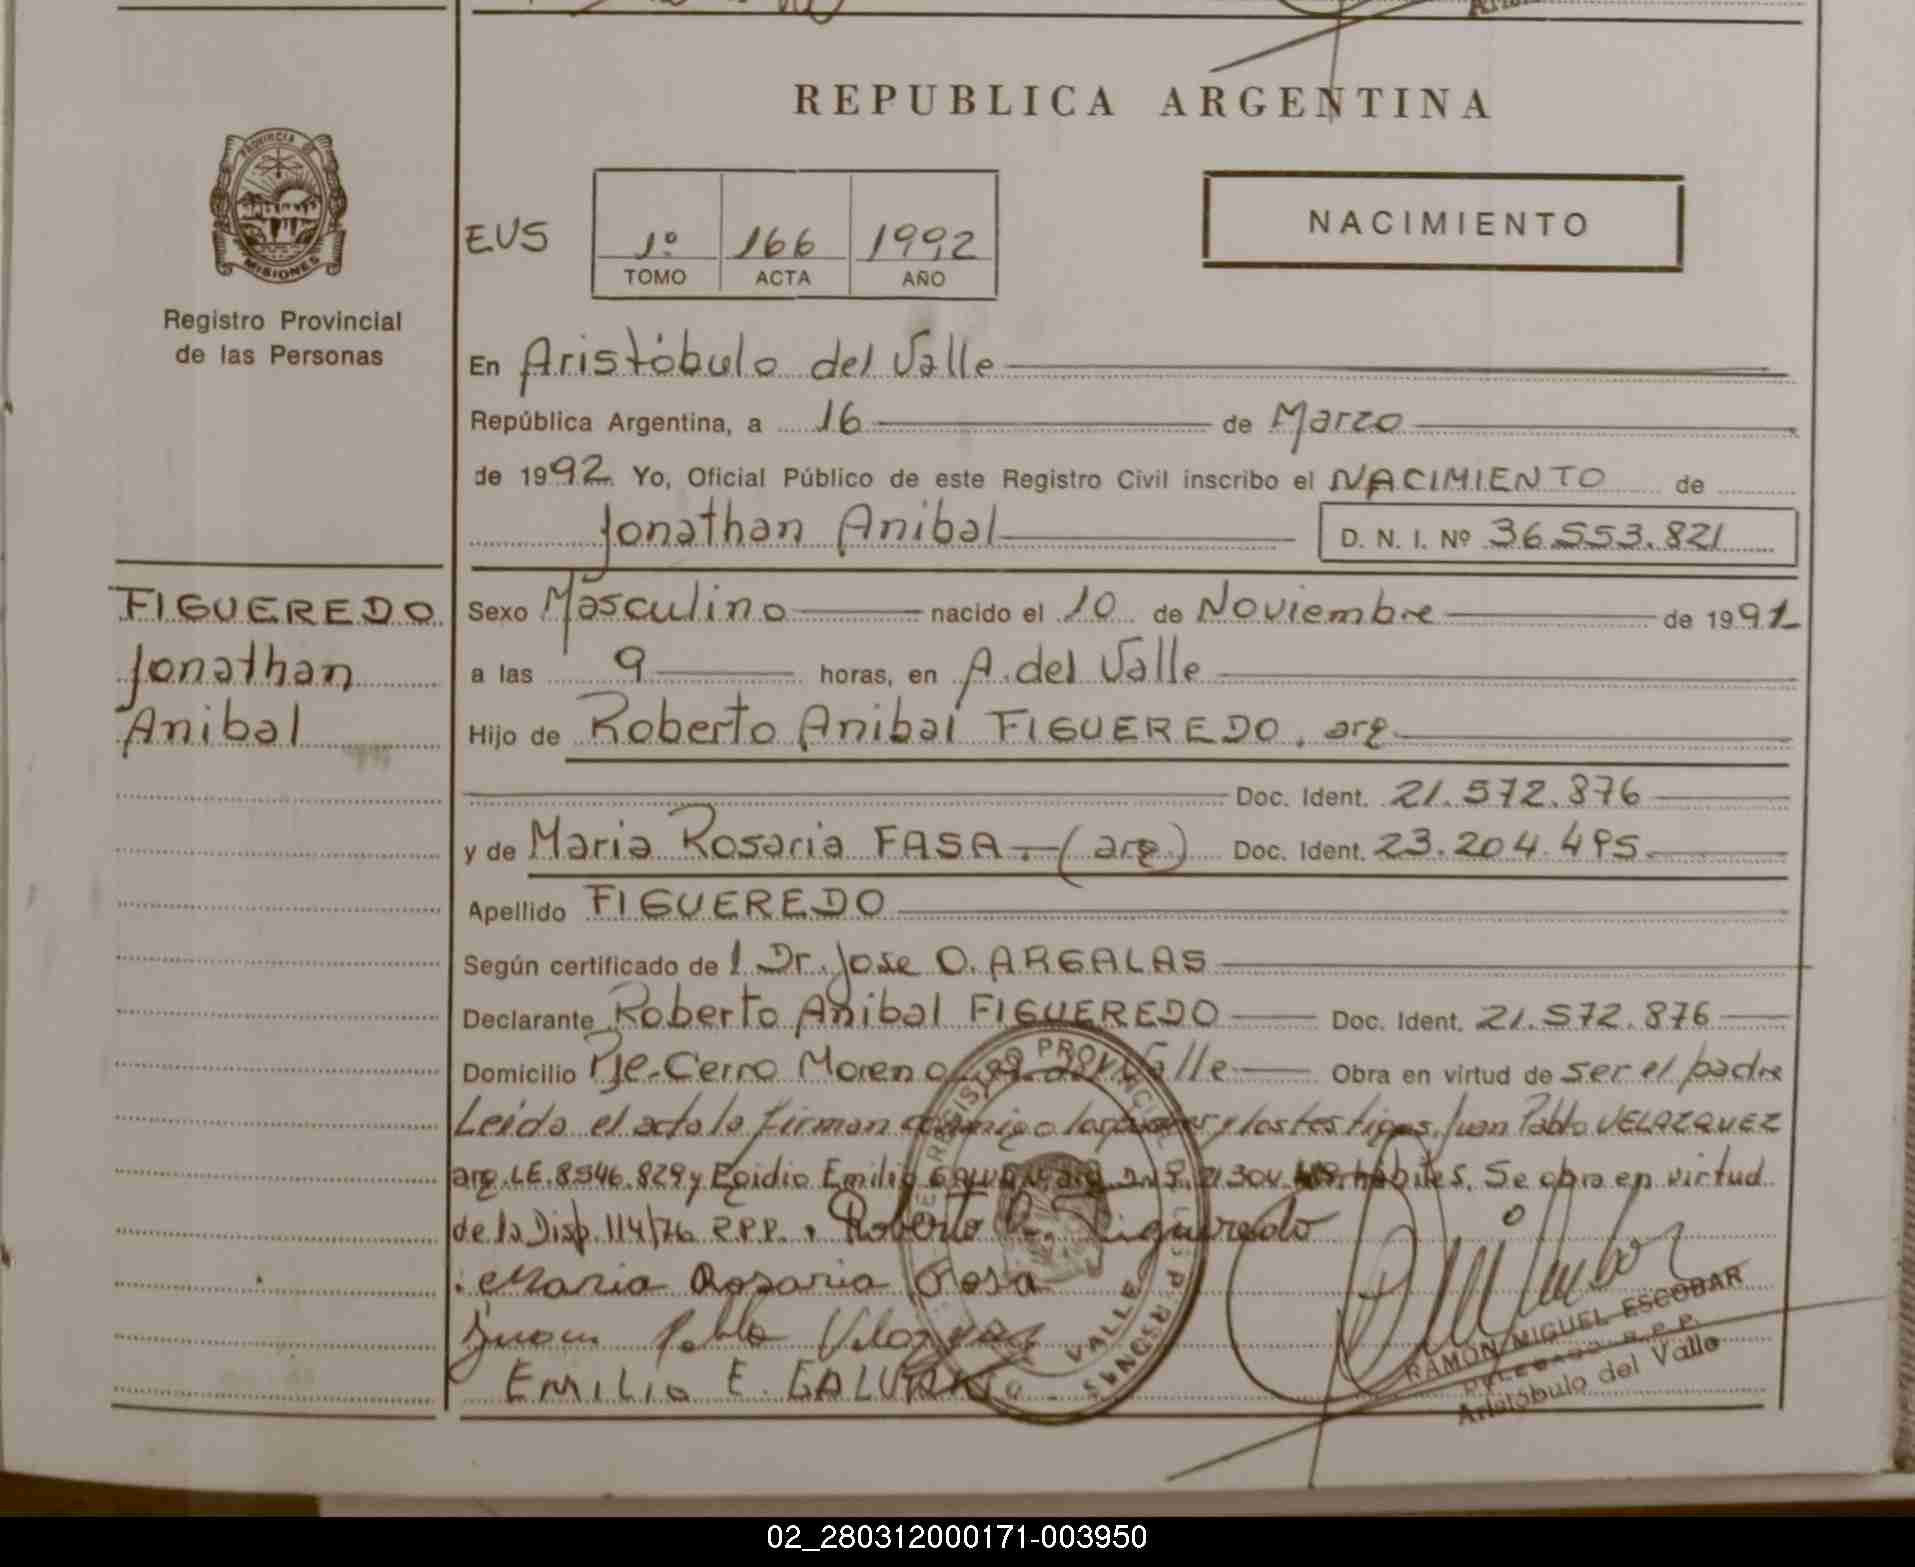 REPUBLICA ARGENTINA
PROVINCIA DE
MISIONES
Registro Provincial
de las Personas
EUS
1º 166 1992
TOMO ACTA AÑO
NACIMIENTO
En Aristóbulo del Valle
República Argentina, a 16 de Marzo
de 1992 Yo, Oficial Público de este Registro Civil inscribo el NACIMIENTO de
Jonathan Anibal D. N. I. Nº 36.553.821
FIGUEREDO
Jonathan
Anibal
Sexo Masculino nacido el 10 de Noviembre de 1991
a las 9 horas, en A. del Valle
Hijo de Roberto Anibal FIGUEREDO. arg
Doc. Ident. 21.572.876
y de Maria Rosaria FASA.-(arg.) Doc. Ident. 23.204.495.
Apellido FIGUEREDO
Según certificado de l Dr. Jose O. ARGALAS
Declarante Roberto Anibal FIGUEREDO Doc. Ident. 21.572.876
Domicilio Pje. Cerro Moreno Valle Obra en virtud de ser el padre
Leida el acta la firman conmigo los y los testigos. Juan Pablo VELAZQUEZ
arg. LE. 8.546.829 y Egidio Emilio hábiles. Se obra en virtud
de la Disp. 114/76 R.P.P. . Roberto A. Figueredo
. Maria Rosaria Fasa
Juan Pablo Velazquez
EMILIO E. GALVAN
REGISTRO PROVINCIAL DE LAS PERSONAS
VALLE
RAMON MIGUEL ESCOBAR
DELEGADO R.P.P.
Aristóbulo del Valle
02_280312000171-003950